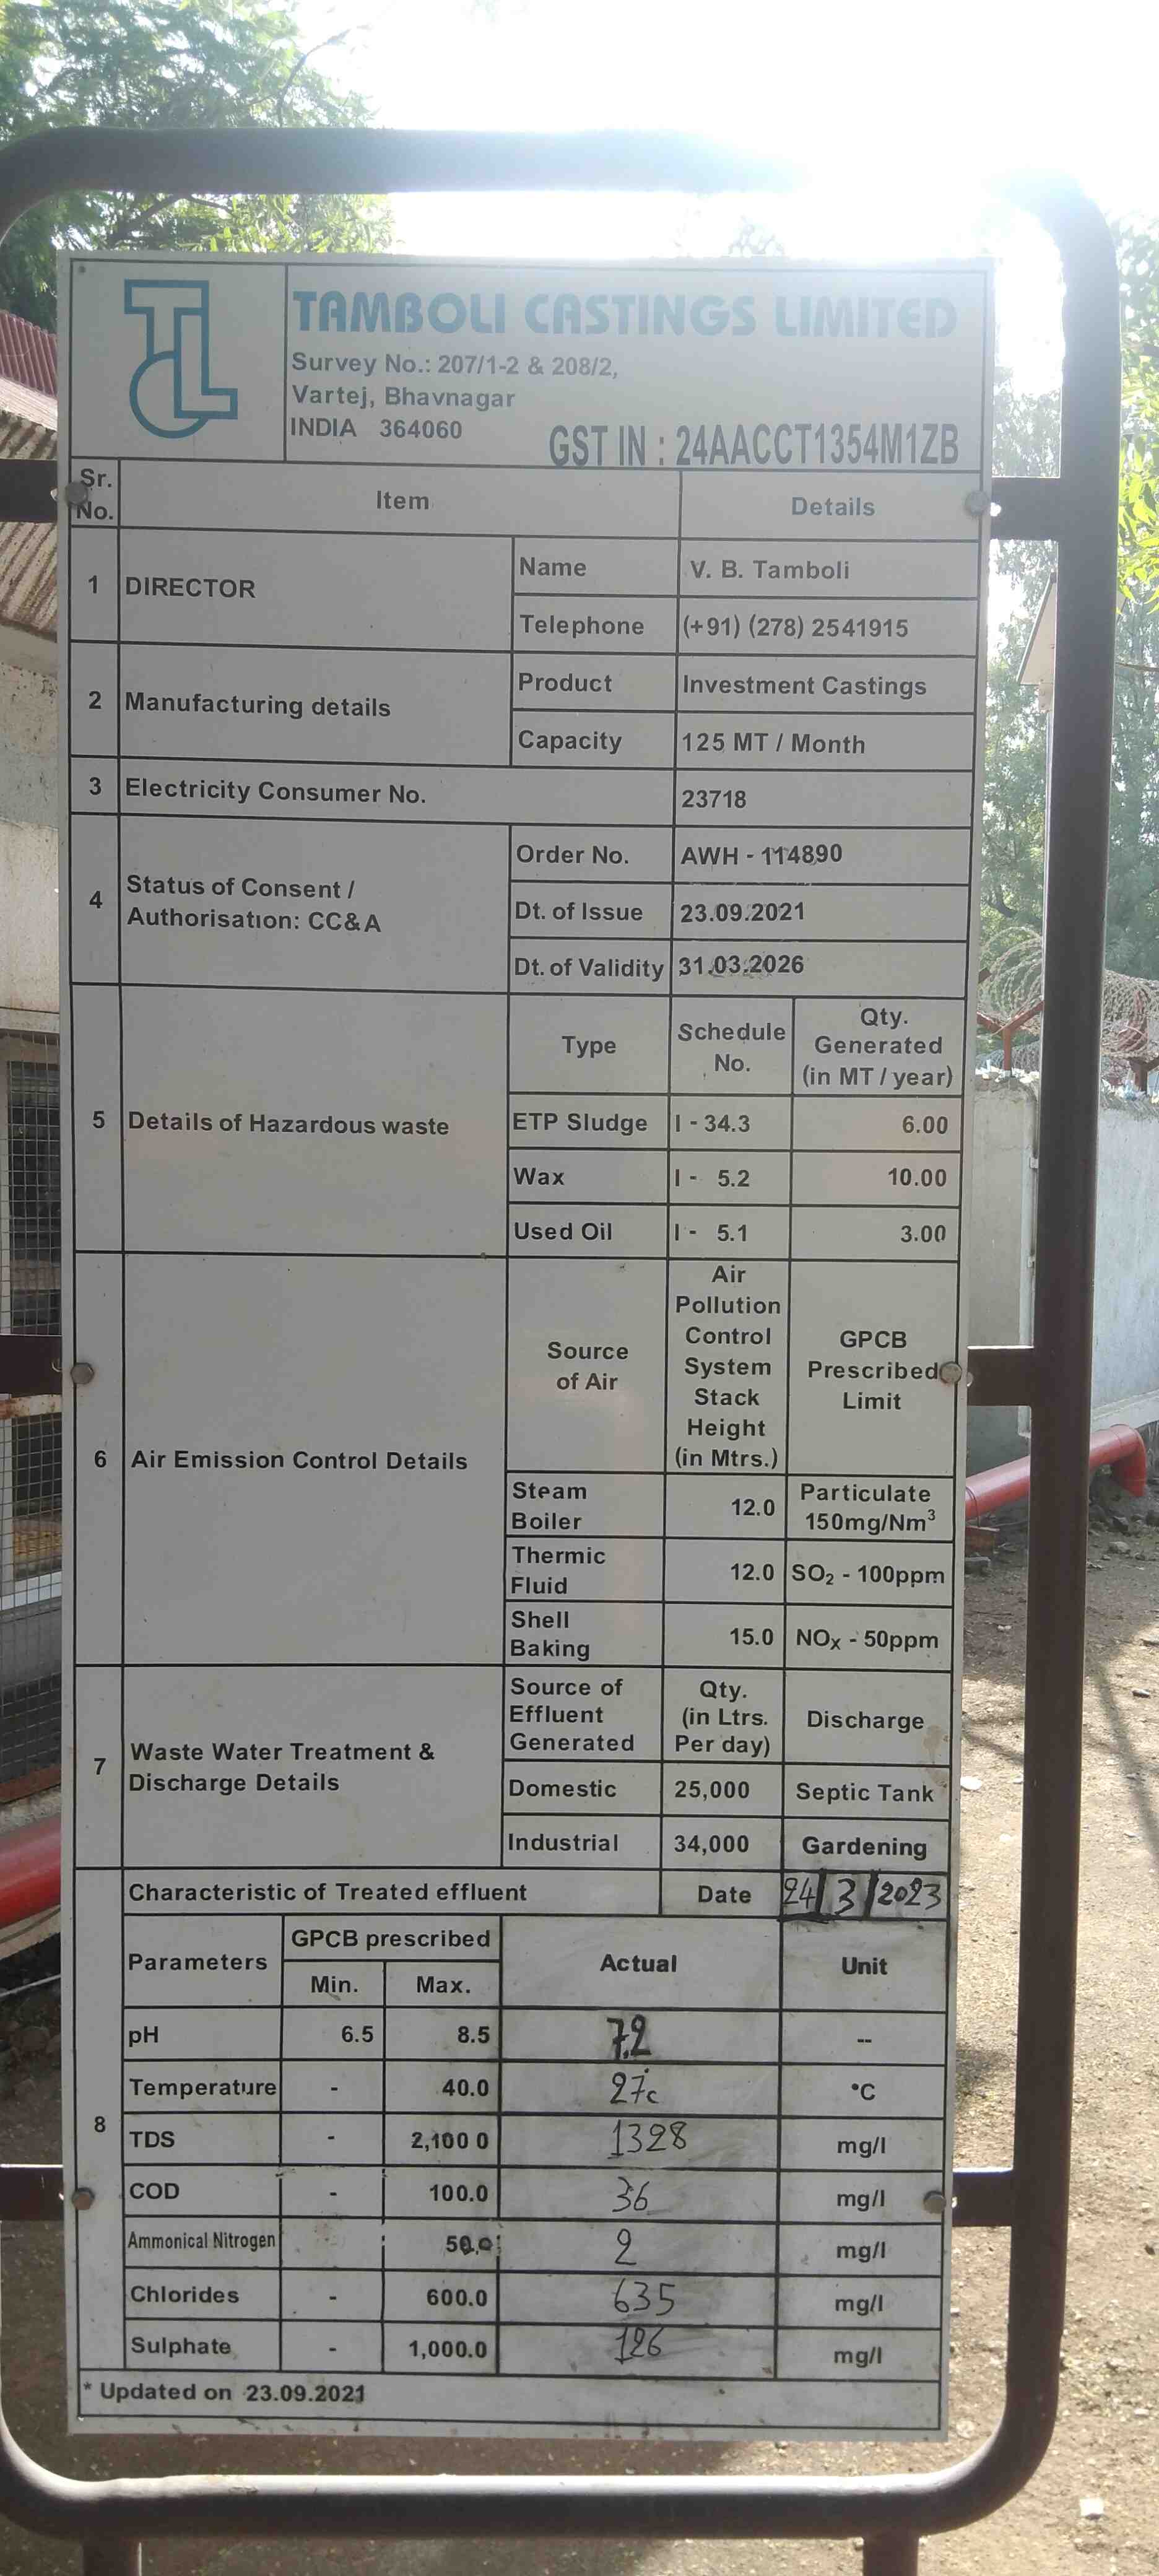 TCL
TAMBOLI CASTINGS LIMITED
Survey No.: 207/1-2 & 208/2,
Vartej, Bhavnagar
INDIA 364060
GST IN : 24AACCT1354M1ZB
Sr. No. Item Details
1 DIRECTOR Name V. B. Tamboli
Telephone (+91) (278) 2541915
2 Manufacturing details Product Investment Castings
Capacity 125 MT / Month
3 Electricity Consumer No. 23718
4 Status of Consent / Authorisation: CC&A Order No. AWH - 114890
Dt. of Issue 23.09.2021
Dt. of Validity 31.03.2026
5 Details of Hazardous waste Type Schedule No. Qty. Generated (in MT / year)
ETP Sludge I - 34.3 6.00
Wax I - 5.2 10.00
Used Oil I - 5.1 3.00
6 Air Emission Control Details Source of Air Air Pollution Control System Stack Height (in Mtrs.) GPCB Prescribed Limit
Steam Boiler 12.0 Particulate 150mg/Nm³
Thermic Fluid 12.0 SO₂ - 100ppm
Shell Baking 15.0 NOx - 50ppm
7 Waste Water Treatment & Discharge Details Source of Effluent Generated Qty. (in Ltrs. Per day) Discharge
Domestic 25,000 Septic Tank
Industrial 34,000 Gardening
8 Characteristic of Treated effluent Date 24/3/2023
Parameters GPCB prescribed Min. Max. Actual Unit
pH 6.5 8.5 7.2 --
Temperature - 40.0 27c °C
TDS - 2,100 0 1328 mg/l
COD - 100.0 36 mg/l
Ammonical Nitrogen 50.0 2 mg/l
Chlorides - 600.0 635 mg/l
Sulphate - 1,000.0 126 mg/l
* Updated on 23.09.2021